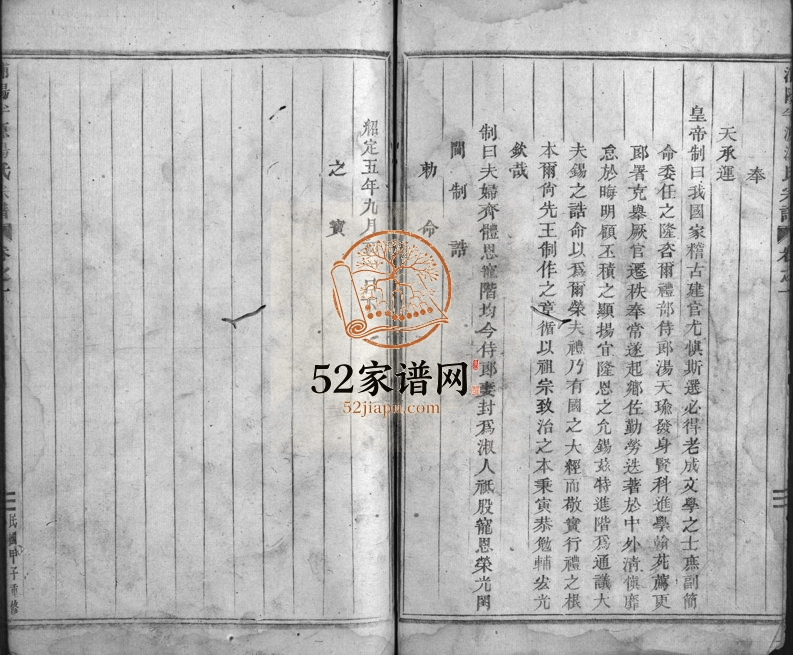 奉
天承運
皇帝制曰我國家稽古建官尤慎斯選必得老成文學之士庶副簡
命委任之隆咨爾禮部侍郎湯天瑜發身賢科進學翰苑薦更
郎署克舉厥官遷秩奉常遂起鄉佐勤勞迭著於中外清慎靡
怠於晦明顧丕積之顯揚宜隆恩之允錫茲特進階爲通議大
夫錫之誥命以爲爾榮夫禮乃有國之大經而敬實行禮之根
本爾尚先王制作之章循以祖宗致治之本秉寅恭勉輔宏光
欽哉
制曰夫婦齊體恩寵階均今侍郎妻封爲淑人祇服寵恩榮光閑
閫制誥
勅命
紹定五年九月 日
之寶
民國甲子重修
52家谱网
52jiapu.com